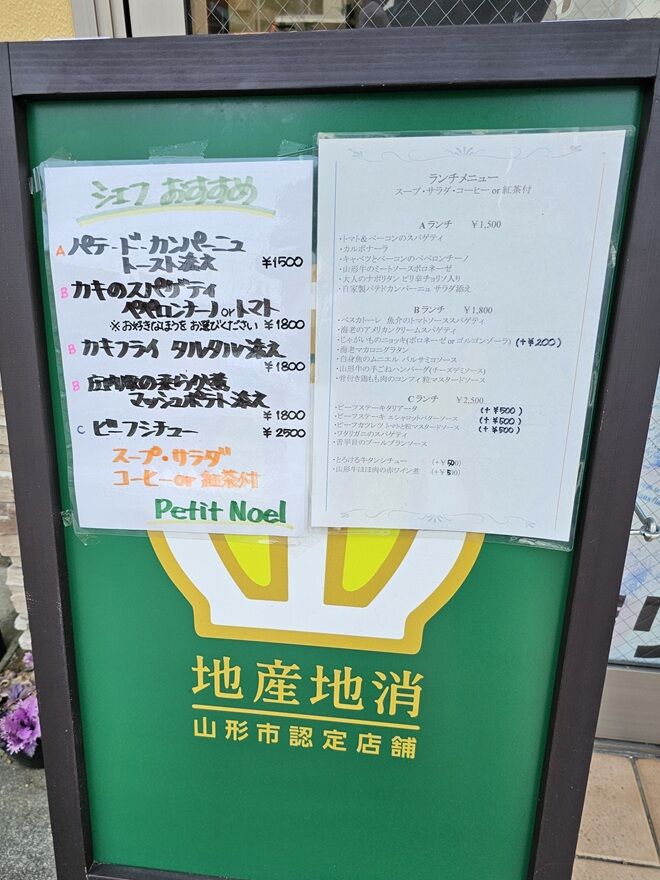 シェフ おすすめ
A パテ・ド・カンパーニュ
トースト添え ¥1500
B カキのスパゲティ
ペペロンチーノ or トマト
※お好きなほうをお選びください ¥1800
B カキフライ タルタル添え
¥1800
B 庄内豚の柔らか煮
マッシュポテト添え
¥1800
C ビーフシチュー ¥2500
スープ・サラダ
コーヒー or 紅茶付
Petit Noel
ランチメニュー
スープ・サラダ・コーヒー or 紅茶付
A ランチ ¥1,500
・トマト&ベーコンのスパゲティ
・カルボナーラ
・キャベツとベーコンのペペロンチーノ
・山形牛のミートソースボロネーゼ
・大人のナポリタン ピリ辛チョリソ入り
・自家製パテドカンパーニュ サラダ添え
B ランチ ¥1,800
・ペスカトーレ 魚介のトマトソーススパゲティ
・海老のアメリカンクリームスパゲティ
・じゃがいものニョッキ(ボロネーゼ or ゴルゴンゾーラ) (+¥200)
・海老マカロニグラタン
・白身魚のムニエル バルサミコソース
・山形牛の手ごねハンバーグ(チーズデミソース)
・骨付き鶏もも肉のコンフィ 粒マスタードソース
C ランチ ¥2,500
・ビーフステーキタリアータ (+¥500)
・ビーフステーキ エシャロットバターソース (+¥500)
・ビーフカツレツ トマトと粒マスタードソース (+¥500)
・ワタリガニのスパゲティ
・舌平目のブールブランソース
・とろける牛タンシチュー (+¥500)
・山形牛ほほ肉の赤ワイン煮 (+¥500)
地産地消
山形市認定店舗